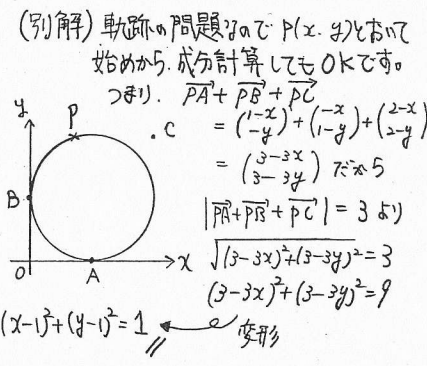 (別解) 軌跡の問題なので P(x. y)とおいて
始めから. 成分計算してもOKです。
つまり. →PA + →PB + →PC
= (1-x -y) + (-x 1-y) + (2-x 2-y)
= (3-3x 3-3y) だから
|→PA+→PB+→PC| = 3 より
√(3-3x)²+(3-3y)² = 3
(3-3x)²+(3-3y)² = 9
変形
(x-1)²+(y-1)² = 1
y
P
C
B
O
A
x